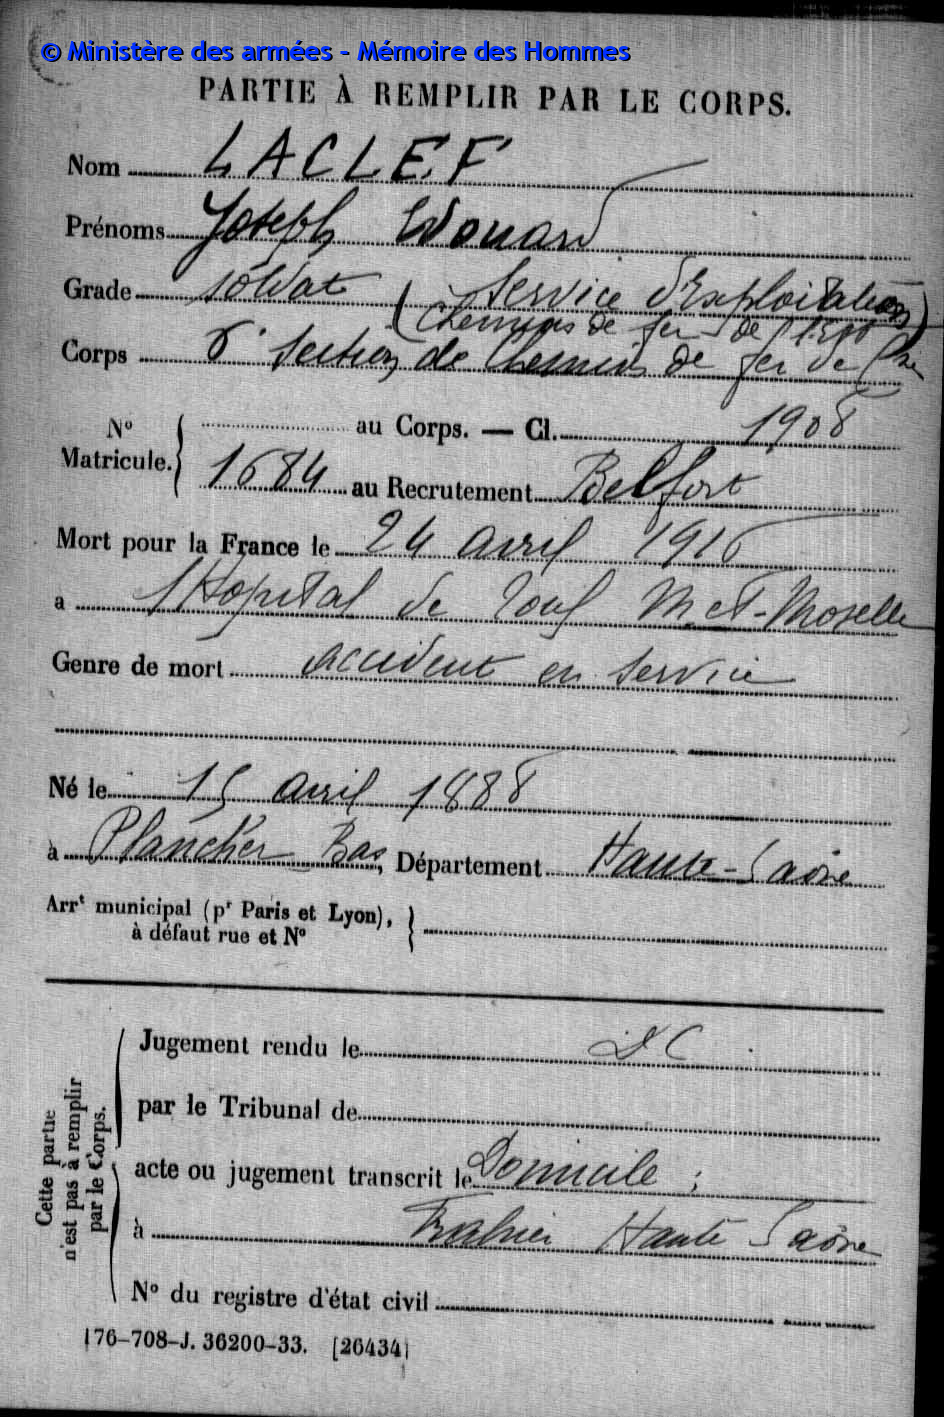 © Ministère des armées - Mémoire des Hommes
PARTIE À REMPLIR PAR LE CORPS.
Nom LACLEF
Prénoms Joseph Edouard
Grade soldat (Service d'Exploitation
Chemins de fer de
Corps 6e section de Chemins de fer de Cne
No Matricule. { au Corps. — Cl. 1908
1684 au Recrutement Belfort
Mort pour la France le 24 avril 1916
a l'Hopital de Toul M. et-Moselle
Genre de mort accident en service
Né le 15 avril 1888
à Plancher Bas, Département Haute-Saône
Arrt municipal (pr Paris et Lyon),
à défaut rue et No
Cette partie n'est pas à remplir par le Corps.
Jugement rendu le DC
par le Tribunal de
acte ou jugement transcrit le Domicile ;
à Frahier Haute Saône
No du registre d'état civil
176-708-J. 36200-33. [26434]